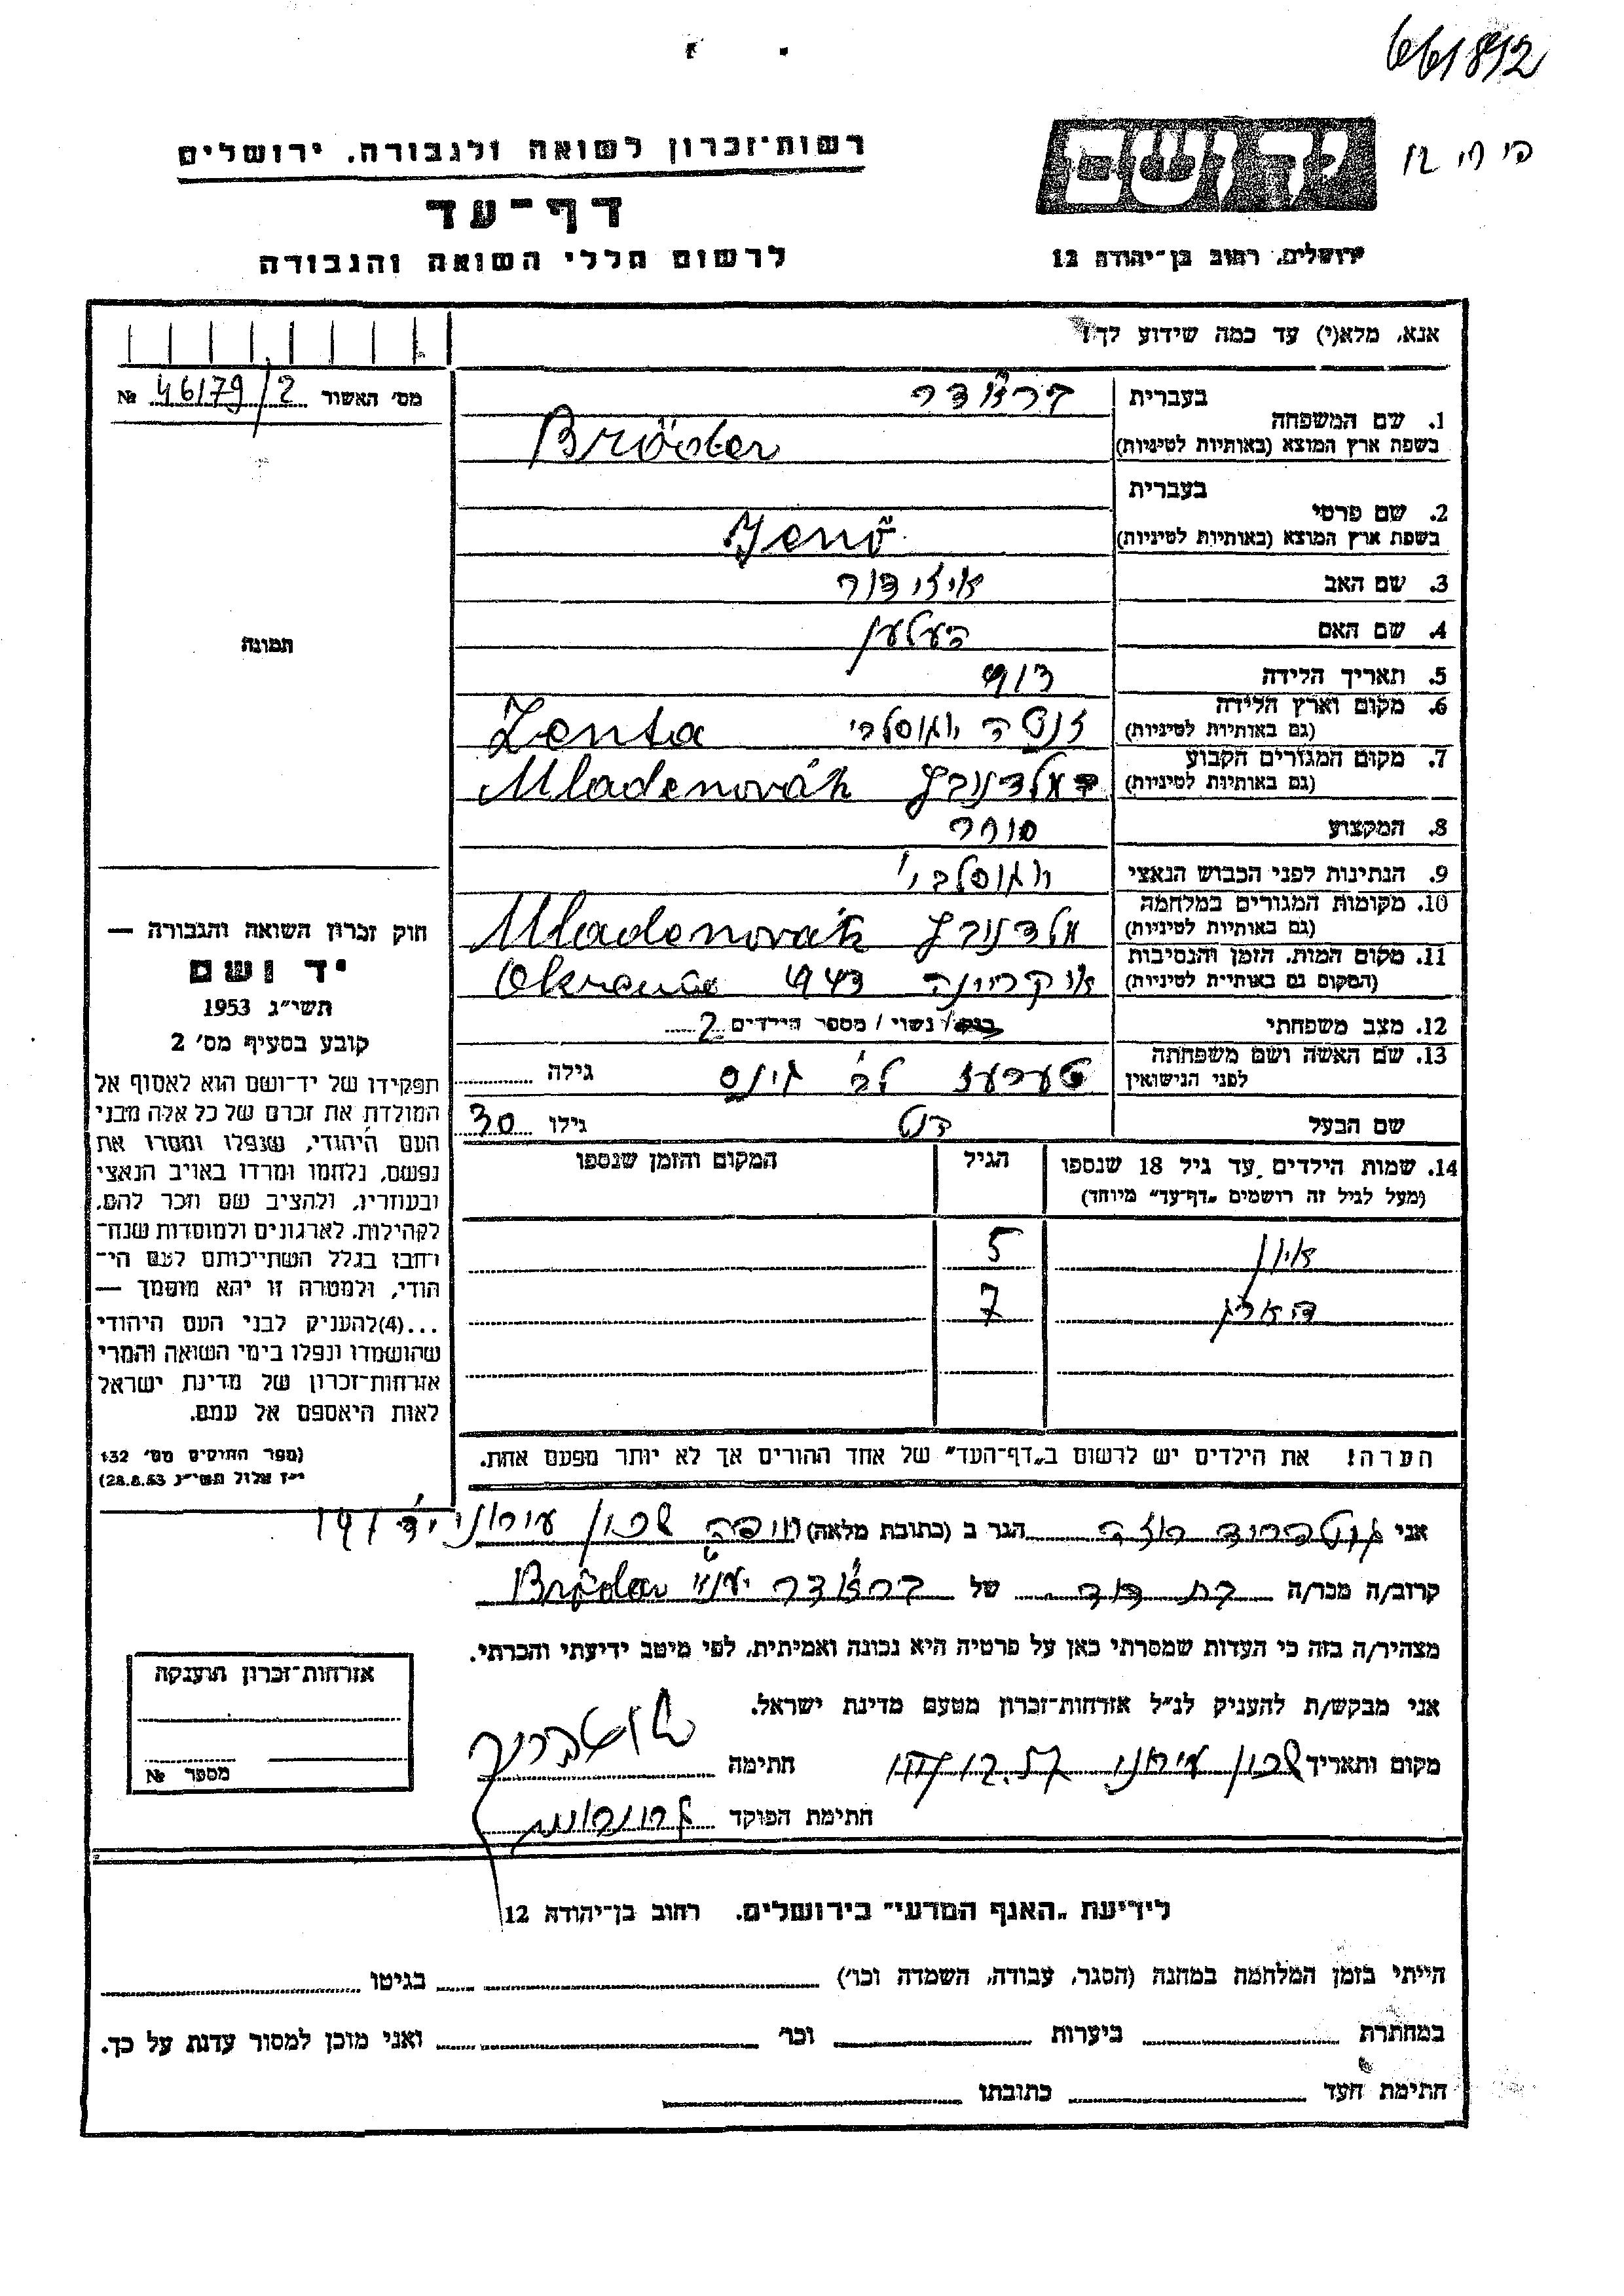 661892
יד ושם
רשות־זכרון לשואה ולגבורה, ירושלים
דף־עד
לרשום חללי השואה והגבורה
ירושלים, רחוב בן־יהודה 12
אנא, מלא(י) עד כמה שידוע לך!
מס׳ האשור 46179/2 №
1. שם המשפחה
בעברית
בשפת ארץ המוצא (באותיות לטיניות)
Bröder
2. שם פרטי
בעברית
בשפת ארץ המוצא (באותיות לטיניות)
Jenő
3. שם האב איזידור
4. שם האם העלען
5. תאריך הלידה 1913
6. מקום וארץ הלידה
(גם באותיות לטיניות)
זנטה יוגוסלבי Zenta
7. מקום המגורים הקבוע
(גם באותיות לטיניות)
Mladenovák
8. המקצוע סוחר
9. הנתינות לפני הכבוש הנאצי יוגוסלבי
10. מקומות המגורים במלחמה
(גם באותיות לטיניות)
מלדנובק Mladenovák
11. מקום המות, הזמן והנסיבות
(המקום גם באותיית לטיניות)
אוקריינה 1943
12. מצב משפחתי רווק/ נשוי / מספר הילדים 2
13. שם האשה ושם משפחתה
לפני הנישואין
גילה
שם הבעל גילו 30
14. שמות הילדים עד גיל 18 שנספו
(מעל לגיל זה רושמים „דף־עד״ מיוחד)
הגיל
המקום והזמן שנספו
5
7
הערה! את הילדים יש לרשום ב„דף־העד״ של אחד ההורים אך לא יותר מפעם אחת.
תמונה
חוק זכרון השואה והגבורה —
יד ושם
תשי״ג 1953
קובע בסעיף מס׳ 2
תפקידו של יד־ושם הוא לאסוף אל
המולדת את זכרם של כל אלה מבני
העם היהודי, שנפלו ומסרו את
נפשם, נלחמו ומרדו באויב הנאצי
ובעוזריו, ולהציב שם וזכר להם,
לקהילות, לארגונים ולמוסדות שנח־
רחבו בגלל השתייכותם לעם הי־
הודי, ולמטרה זו יהא מוסמך —
...(4)להעניק לבני העם היהודי
שהושמדו ונפלו בימי השואה והמרי
אזרחות־זכרון של מדינת ישראל
לאות היאספם אל עמם.
(ספר החוקים מס׳ 132
י״ז אלול תשי״ג 28.8.53)
אני רוזה הגר ב (כתובת מלאה) חיפה שכון עירוני
קרוב/ה מכר/ה בת דוד של ברודר יענו Bröder
מצהיר/ה בזה כי העדות שמסרתי כאן על פרטיה היא נכונה ואמיתית, לפי מיטב ידיעתי והכרתי.
אני מבקש/ת להעניק לנ״ל אזרחות־זכרון מטעם מדינת ישראל.
מקום ותאריך שכון עירוני חתימה
חתימת הפוקד
אזרחות־זכרון הוענקה
מספר №
לידיעת „האגף המדעי״ בירושלים. רחוב בן־יהודה 12
הייתי בזמן המלחמה במחנה (הסגר, עבודה, השמדה וכו׳) בגיטו
במחתרת ביערות וכו׳ ואני מוכן למסור עדות על כך.
חתימת העד כתובתו